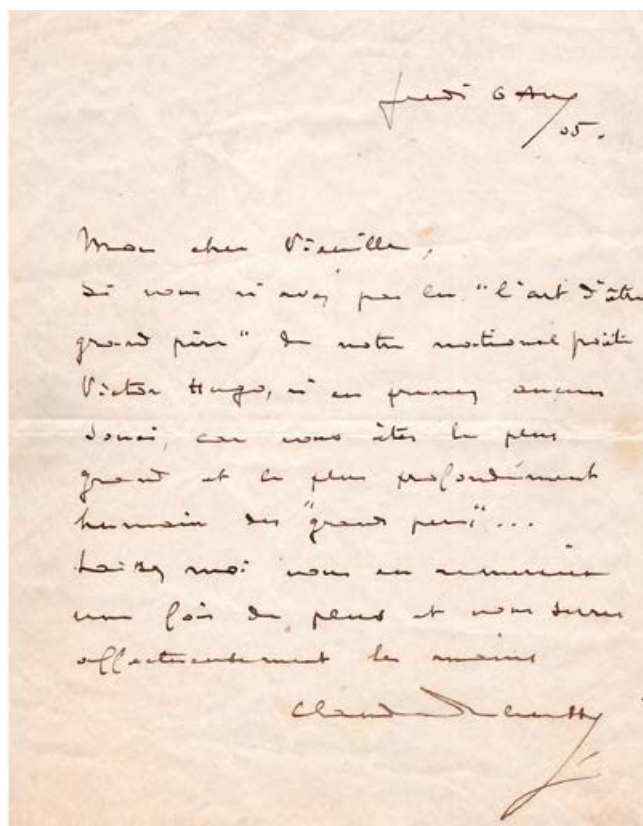 Jeudi 6 Avr
/05.
Mon cher Vieuille,
Si vous n'avez pas lu "l'art d'être
grand père" de notre national poète
Victor Hugo, n'en prenez aucun
souci, car vous êtes le plus
grand et le plus profondément
humain des "grands pères"...
Laissez moi vous en remercier
une fois de plus et vous serrer
affectueusement les mains
Claude Debussy